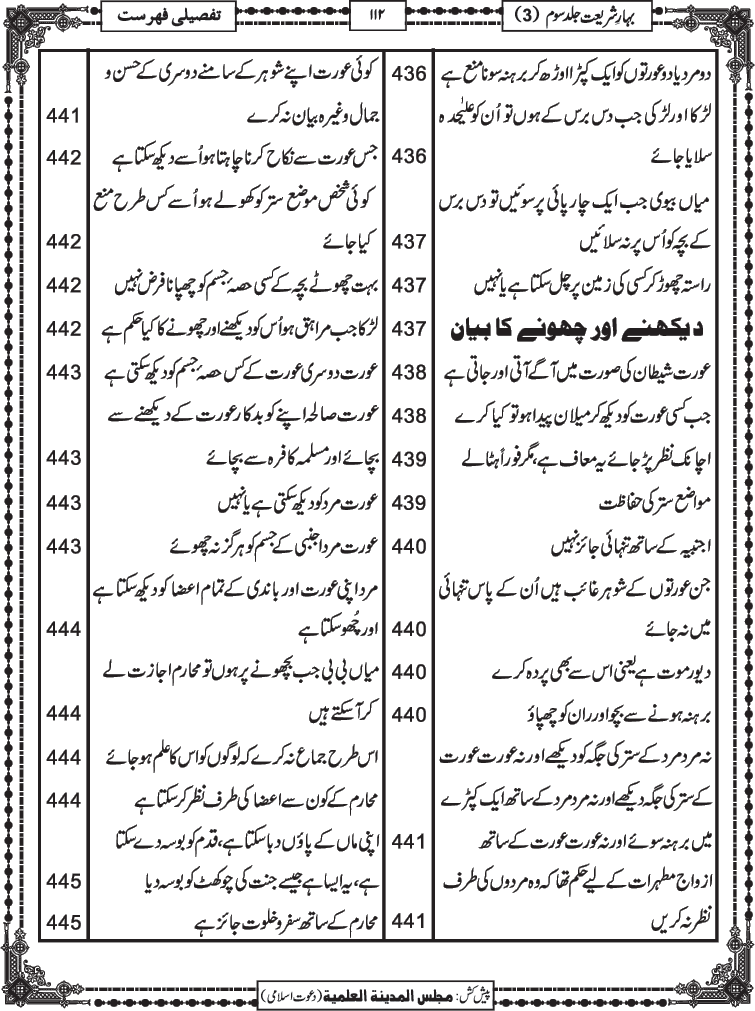 بہارِ شریعت جلد سوم (3)
۱۱۲
تفصیلی فہرست
دو مرد یا دو عورتوں کو ایک کپڑا اوڑھ کر برہنہ سونا منع ہے 436
لڑکا اور لڑکی جب دس برس کے ہوں تو اُن کو علیٰحدہ
سلایا جائے 436
میاں بیوی جب ایک چارپائی پر سوئیں تو دس برس
کے بچہ کو اُس پر نہ سلائیں 437
راستہ چھوڑ کر کسی کی زمین پر چل سکتا ہے یا نہیں 437
دیکھنے اور چھونے کا بیان 437
عورت شیطان کی صورت میں آگے آتی اور جاتی ہے 438
جب کسی عورت کو دیکھ کر میلان پیدا ہو تو کیا کرے 438
اچانک نظر پڑ جائے یہ معاف ہے، مگر فوراً ہٹالے 439
مواضع ستر کی حفاظت 439
اجنبیہ کے ساتھ تنہائی جائز نہیں 440
جن عورتوں کے شوہر غائب ہیں اُن کے پاس تنہائی
میں نہ جائے 440
دیور موت ہے یعنی اس سے بھی پردہ کرے 440
برہنہ ہونے سے بچو اور ران کو چھپاؤ 440
نہ مرد مرد کے ستر کی جگہ کو دیکھے اور نہ عورت عورت
کے ستر کی جگہ دیکھے اور نہ مرد مرد کے ساتھ ایک کپڑے
میں برہنہ سوئے اور نہ عورت عورت کے ساتھ 441
ازواج مطہرات کے لیے حکم تھا کہ وہ مردوں کی طرف
نظر نہ کریں 441
کوئی عورت اپنے شوہر کے سامنے دوسری کے حسن و
جمال وغیرہ بیان نہ کرے 441
جس عورت سے نکاح کرنا چاہتا ہو اُسے دیکھ سکتا ہے 442
کوئی شخص موضع ستر کو کھولے ہو اُسے کس طرح منع
کیا جائے 442
بہت چھوٹے بچہ کے کسی حصۂ جسم کو چھپانا فرض نہیں 442
لڑکا جب مراہق ہو اُس کو دیکھنے اور چھونے کا کیا حکم ہے 442
عورت دوسری عورت کے کس حصۂ جسم کو دیکھ سکتی ہے 443
عورت صالحہ اپنے کو بدکار عورت کے دیکھنے سے
بچائے اور مسلمہ کافرہ سے بچائے 443
عورت مرد کو دیکھ سکتی ہے یا نہیں 443
عورت مرد اجنبی کے جسم کو ہرگز نہ چھوئے 443
مرد اپنی عورت اور باندی کے تمام اعضا کو دیکھ سکتا ہے
اور چُھو سکتا ہے 444
میاں بی بی جب بچھونے پر ہوں تو محارم اجازت لے
کر آسکتے ہیں 444
اس طرح جماع نہ کرے کہ لوگوں کو اس کا علم ہو جائے 444
محارم کے کون سے اعضا کی طرف نظر کر سکتا ہے 444
اپنی ماں کے پاؤں دبا سکتا ہے، قدم کو بوسہ دے سکتا
ہے، یہ ایسا ہے جیسے جنت کی چوکھٹ کو بوسہ دیا 445
محارم کے ساتھ سفر و خلوت جائز ہے 445
پیش کش: مجلس المدینة العلمیة (دعوت اسلامی)